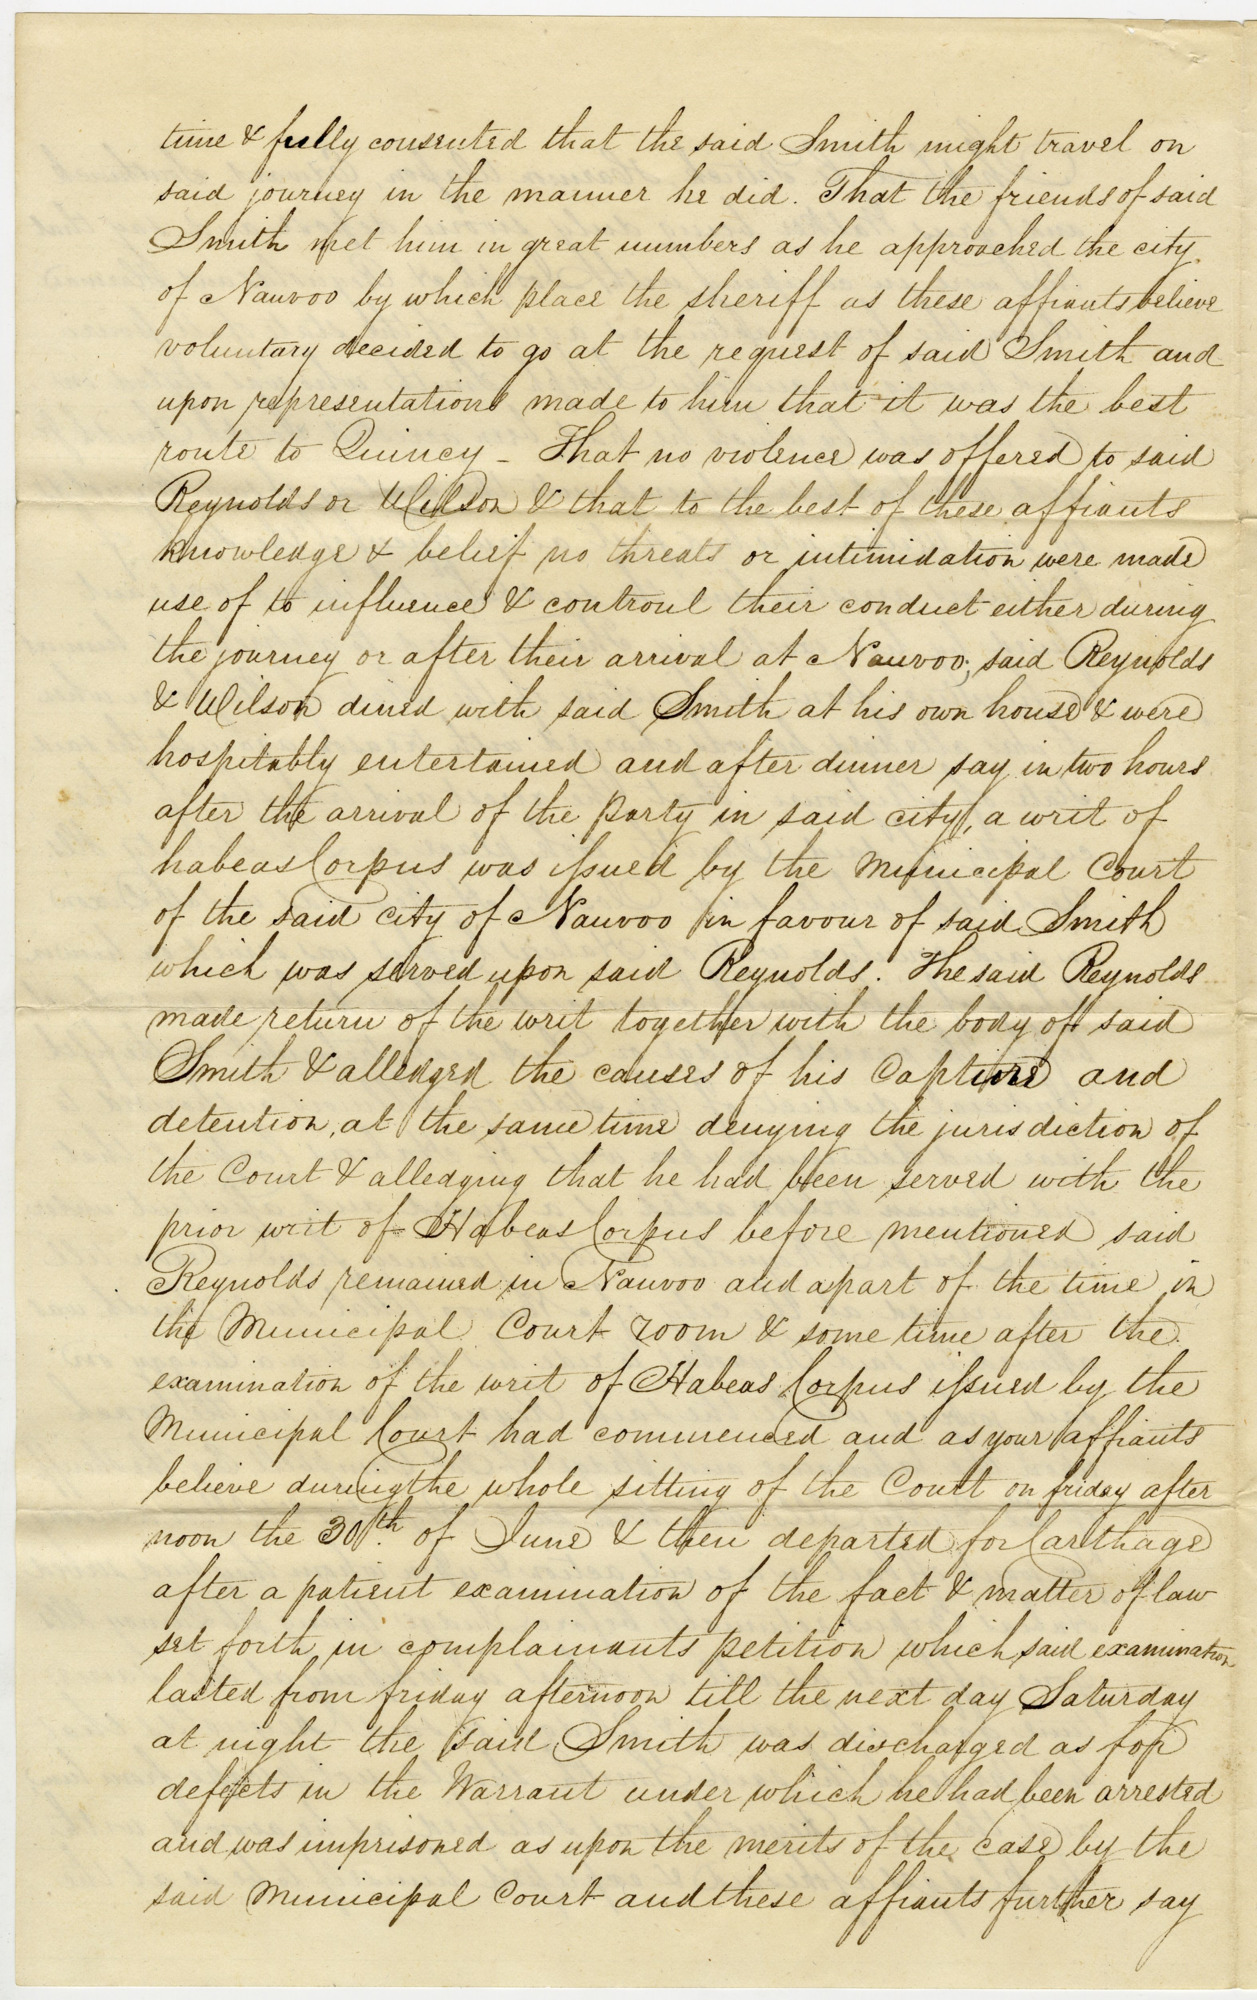 time & fully consented that the said Smith might travel on
said journey in the manner he did. That the friends of said
Smith met him in great numbers as he approached the city
of Nauvoo by which place the sheriff as these affiants believe
voluntary decided to go at the request of said Smith and
upon representations made to him that it was the best
route to Quincy - That no violence was offered to said
Reynolds or Wilson & that to the best of these affiants
knowledge & belief no threats or intimidation were made
use of to influence & controul their conduct either during
the journey or after their arrival at Nauvoo, said Reynolds
& Wilson dined with said Smith at his own house & were
hospitably entertained and after dinner say in two hours
after the arrival of the party in said city, a writ of
habeas Corpus was issued by the Municipal Court
of the said city of Nauvoo in favour of said Smith
which was served upon said Reynolds. The said Reynolds
made return of the writ together with the body of said
Smith & alledged the causes of his Capture and
detention, at the same time denying the jurisdiction of
the Court & alledging that he had been served with the
prior writ of Habeas Corpus before mentioned said
Reynolds remained in Nauvoo and apart of the time in
the Municipal Court room & some time after the
examination of the writ of Habeas Corpus issued by the
Municipal Court had commenced and as your affiants
believe during the whole sitting of the Court on friday after
noon the 30th. of June & then departed for Carthage
after a patient examination of the fact & matter of law
set forth in complainants petition which said examination
lasted from friday afternoon till the next day Saturday
at night the said Smith was discharged as for
defects in the Warrant under which he had been arrested
and was imprisoned as upon the merits of the case by the
said Municipal Court and these affiants further say